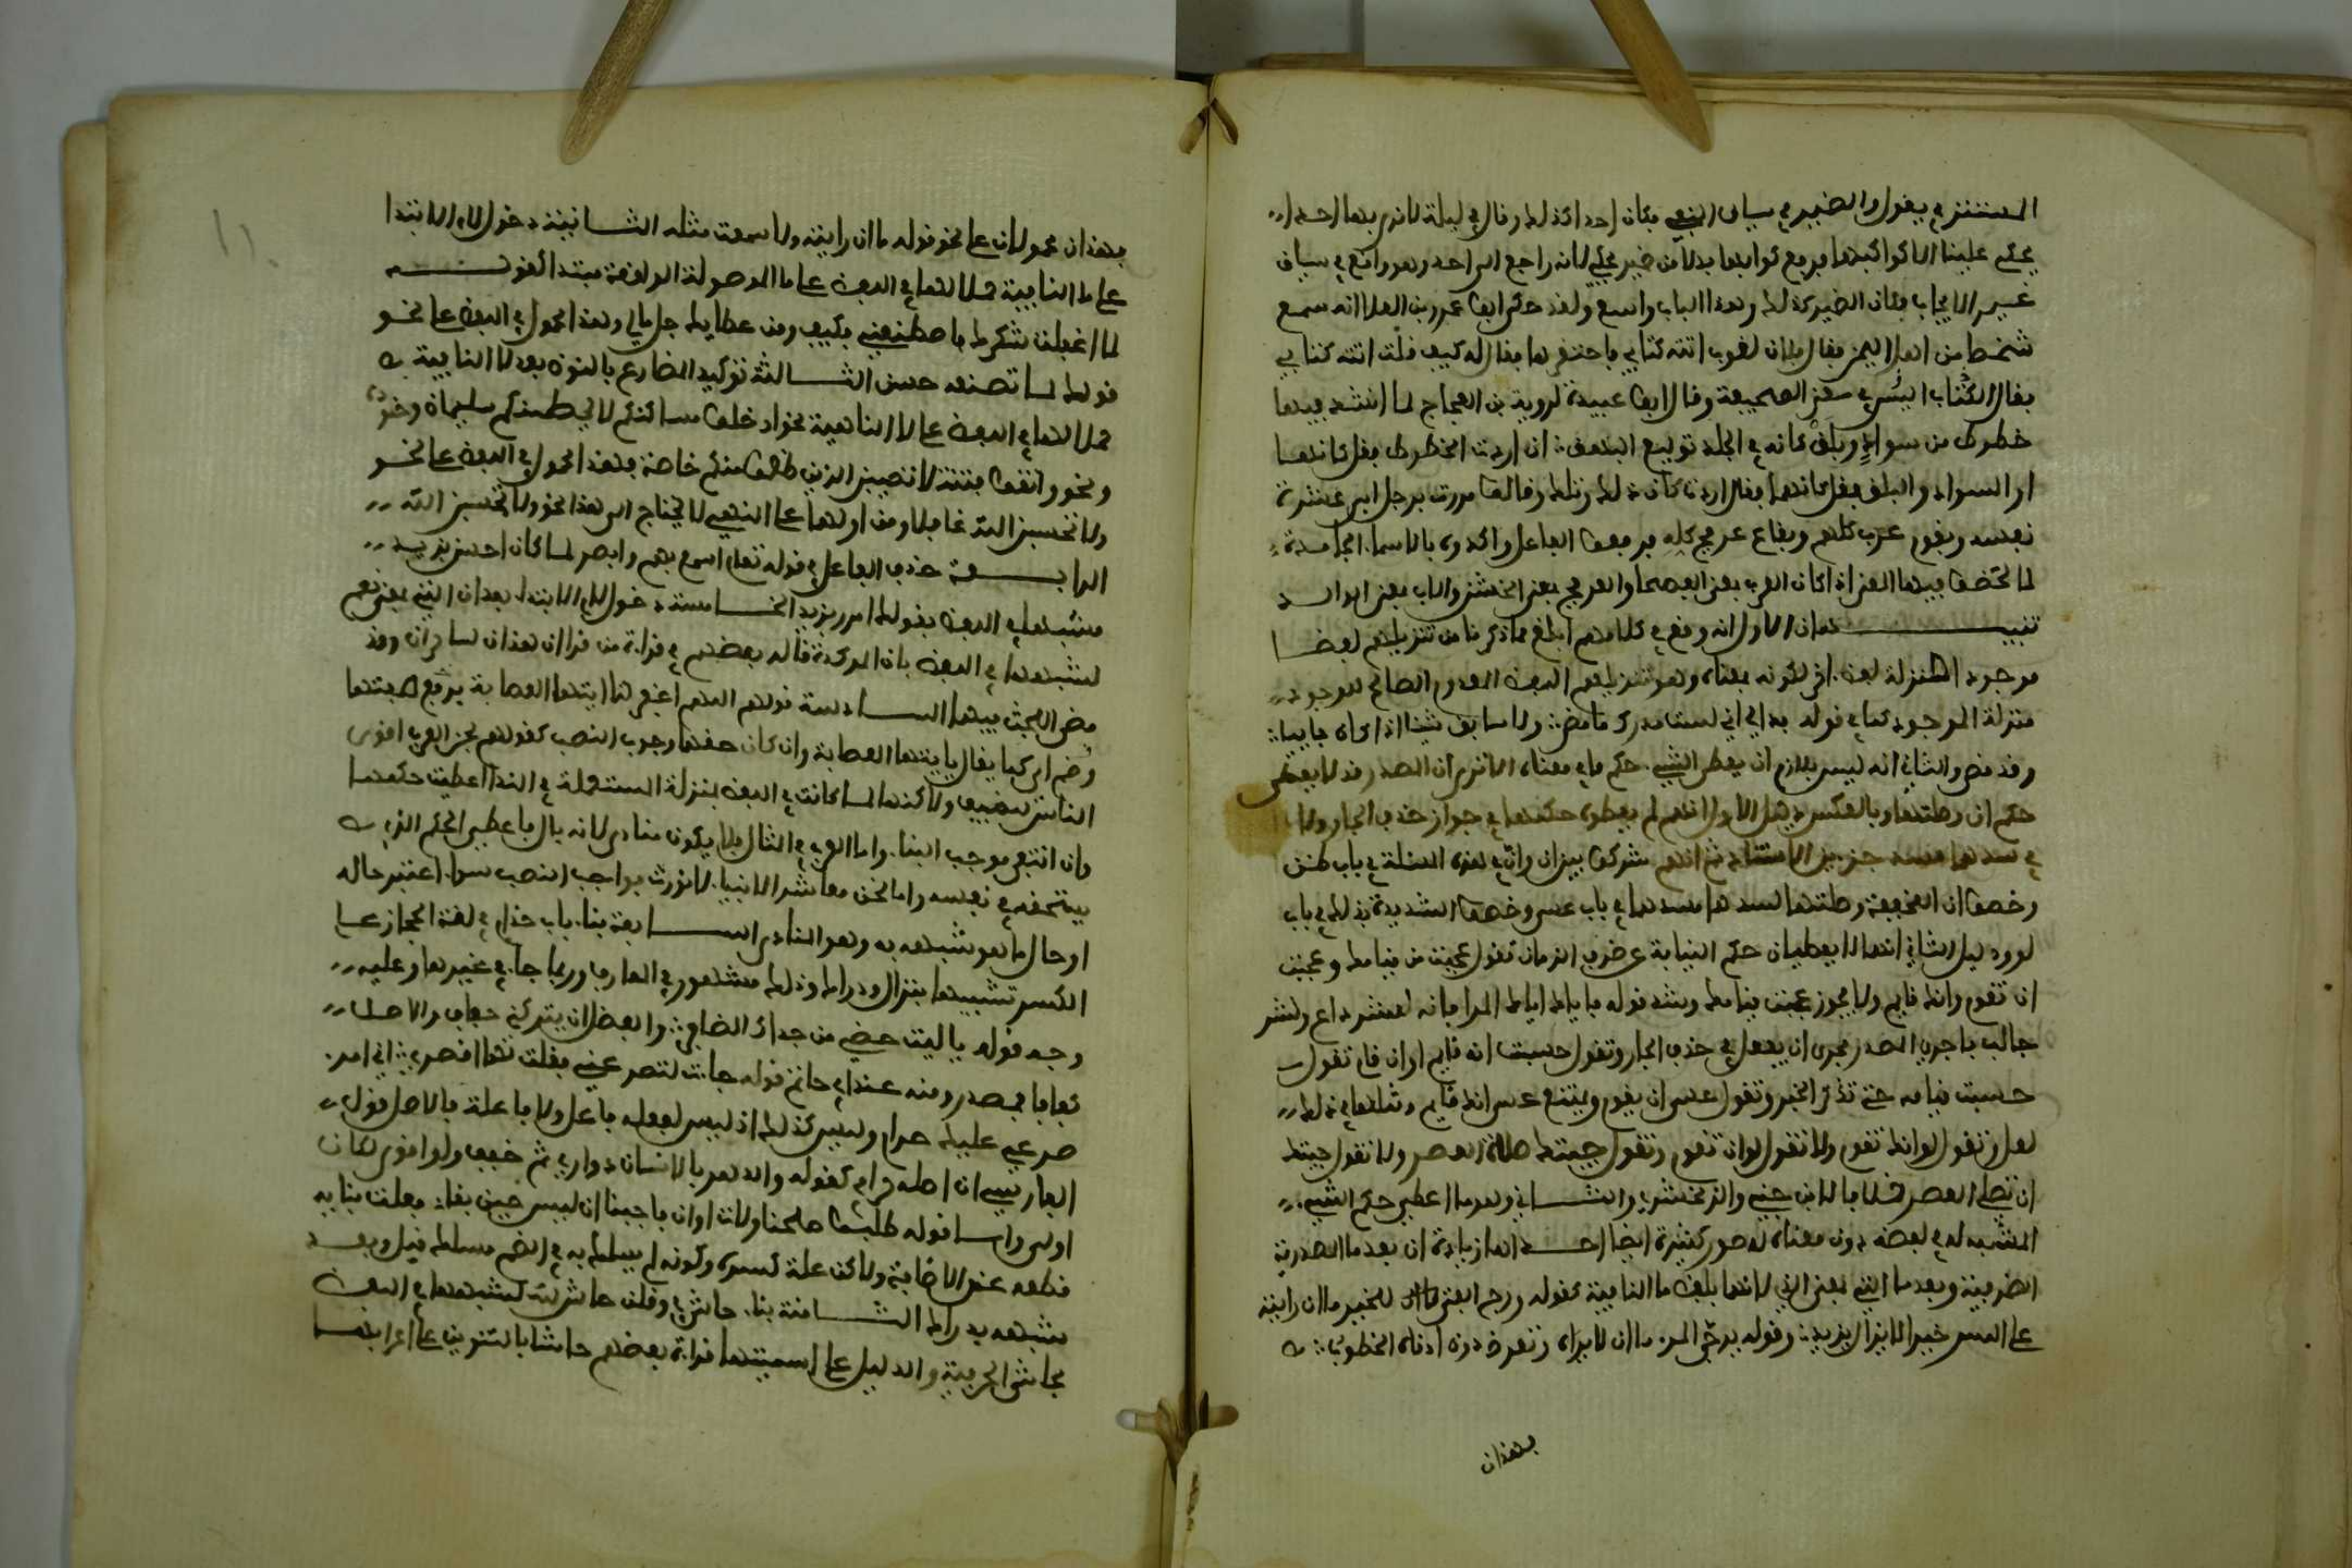 المستتر في يقوله والضمير في سياق النفي فكان احد كذلك وقال في ليلة لا نرى بها احدا
يحكي علينا الا كواكبها فرفع كواكبها بدلا من ضمير يحكي لانه راجع الى احدا وهو واقع في سياق
غير الايجاب فكان الضمير كذلك وهذا الباب واسع ولقد حكى ابو عمرو بن العلا انه سمع
شخصا من اهل اليمن يقال فلان لغوب اتته كتابي فاحتقرها فقال له كيف قلت اتته كتابي
فقال الكتاب اليس في معنى الصحيفة وقال ابو عبيدة لروبة بن العجاج لما انشد فيها
خطوط من سواد وبلق كانه في الجلد توليع البهق ان اردت الخطوط فقل كانها
او السواد والبلق فقل كانهما فقال اردت كان ذلك وتلك وقالوا مررت برجل ابي عشرة
نفسه وبقوم عرب كلهم وبقاع عرفج كله فرفعوا الفاعل واكدوا بالاسما الجامدة
لما لحظوا فيها المعنى اذا كان العرب بمعنى الفصحا والعرفج بمعنى الخشن والاب بمعنى الوالد
تنبيهان الاول انه وقع في كلامهم ابلغ مما ذكرنا من تنزيلهم لفظا
موجودا منزلة لفظ اخر لكونه بمعناه وهو تنزيلهم اللفظ المعدوم الصالح للوجود
منزلة الموجود كما في قوله بدا لي اني لست مدرك ما مضى ولا سابق شيئا اذا كان جاييا
وقد مضى والثاني انه ليس بلازم ان يعطى الشيء حكم ما في معناه الا ترى ان المصدر قد لا يعطى
حكم ان وصلتها وبالعكس دليل الاول انهم لم يعطوه حكمها في جواز حذف الجار ولا
في سدها مسد جزءي الاسناد ثم انهم شركوا بين ان وان في هذه المسئلة في باب ظن
وخصوا ان الخفيفة وصلتها بسدها مسدهما في باب عسى وخصوا الشديدة بذلك في باب
لو ودليل الثاني انهما لا يعطيان حكم النيابة عن ظرف الزمان تقول عجبت من قيامك وعجبت
ان تقوم وانك قايم ولا يجوز عجبت قيامك وشذ قوله فاياك اياك المرا فانه للشر دعا وللشر
جالب فاجري المصدر مجرى ان يفعل في حذف الجار وتقول حسبت انه قايم او ان قام تقول
حسبت قيامه حتى تذكر الخبر وتقول عسى ان يقوم ويمتنع عسى انك قايم ومثلها في ذلك
لعل وتقول لو انك تقوم ولا تقول لو ان تقوم وتقول جيتك صلاة العصر ولا تقول جيتك
ان تصلي العصر خلافا لابن جني والزمخشري والثاني وهو ما اعطي حكم الشيء
المشبه له في لفظه دون معناه له صور كثيرة ايضا احدها زيادة ان بعد ما المصدرية
الظرفية وبعد ما التي بمعنى الذي لانها بلفظ ما النافية كقوله ورج الفتى للخير ما ان رايته
على السن خيرا لا يزال يزيد وقوله يرجي المر ما ان لا يراه وتعرض دون ادناه الخطوب
بهذان
١١
فهذان محمولان على نحو قوله ما ان رايت ولا سمعت مثله الثانية دخول لام الابتدا
على ما النافية حملا لها في اللفظ على ما الموصولة الواقعة مبتدا كقوله
لما اغفلت شكرك فاصطنعني فكيف ومن عطايك جل مالي وهذا محمول في اللفظ على نحو
قولك لما تصنعه حسن الثالثة توكيد المضارع بالنون بعد لا النافية
حملا لها في اللفظ على لا الناهية نحو ادخلوا مساكنكم لا يحطمنكم سليمان وجنوده
ونحو واتقوا فتنة لا تصيبن الذين ظلموا منكم خاصة فهذا محمول في اللفظ على نحو
ولا تحسبن الله غافلا ومن اولها على النهي لا يحتاج الى هذا نحو ولا تحسبن الله
الرابعة حذف الفاعل في قوله تعالى اسمع بهم وابصر لما كان احسن بزيد
مشبها في اللفظ بقولك امرر بزيد الخامسة دخول لام الابتدا بعد ان التي بمعنى نعم
لشبهها في اللفظ بان الموكدة قاله بعضهم في قراة من قرا ان هذان لساحران وقد
مضى البحث فيها السادسة قولهم اللهم اغفر لنا ايتها العصابة برفع صفتها
وضم اي كما يقال يا ايتها العصابة وان كان حقها وجوب النصب كقولهم نحن العرب اقرى
الناس للضيف ولاكنها لما كانت في اللفظ بمنزلة المستعملة في الندا اعطيت حكمها
وان انتفى موجب البنا واما العرب في المثال فلا يكون منادى لانه بال فاعطي الحكم الذي
يستحقه في نفسه واما نحن معاشر الانبيا لا نورث فواجب النصب سوا اعتبر حاله
او حال ما هو شبهه به وهو المنادى السابعة بنا باب حذام في لغة الحجاز على
الكسر تشبيها بنزال ودراك وذلك مشهور في المعارف وربما جا في غيرها وعليه
وجه قوله يا ليت حظي من جداك الضافي والفضل ان يتركني كفاف والاصل
كفافا فمصدر ومنه عند ابي حاتم قوله جات لتصرعني فقلت لها اقصري اني امر
صرعي عليك حرام وليس كذلك اذ ليس لفعله فاعل ولا فاعلة فالاصل قول
الفارسي ان اصله حرامي كقوله والدهر بالانسان دواري ثم خفف ولو اقوى لكان
اولى واما قوله طلبوا صلحنا ولات اوان فاجبنا ان ليس حين بقاء فعلت بنايه
قطعه عن الاضافة ولاكن علة كسره وكونه لم يسلك به في الضم مسلك قبل وبعد
شبهه بدراك الثامنة بنا حاش في وقلن حاش لله لشبهها في اللفظ
بحاشى الحرفية والدليل على اسميتها قراة بعضهم حاشا بالتنوين على اعرابها